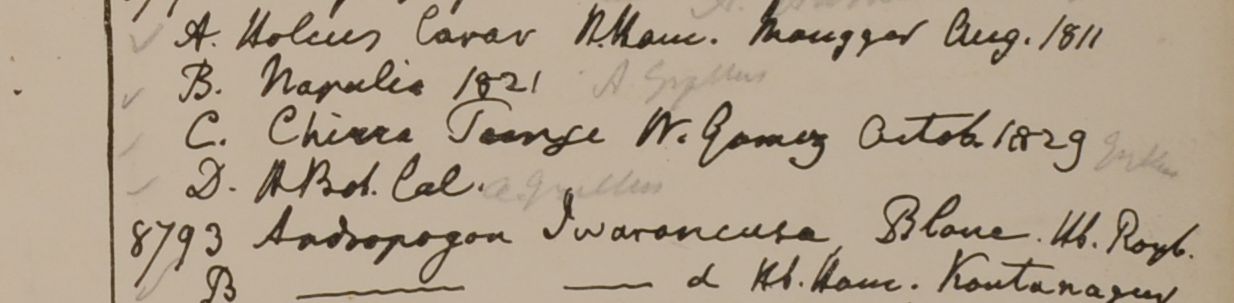 A. Holcus Cavar H. Ham. Maugger Aug. 1811
B. Napalia 1821 A Gryllus
C. Chirra Toonge W. Gomez Octob. 1829 Gryllus
D. H Bot. Cal. A. Gryllus
8793 Andropogon Iwarancusa, Blane. Hb. Roxb.
B — — d Hb. Ham. Kautanagur